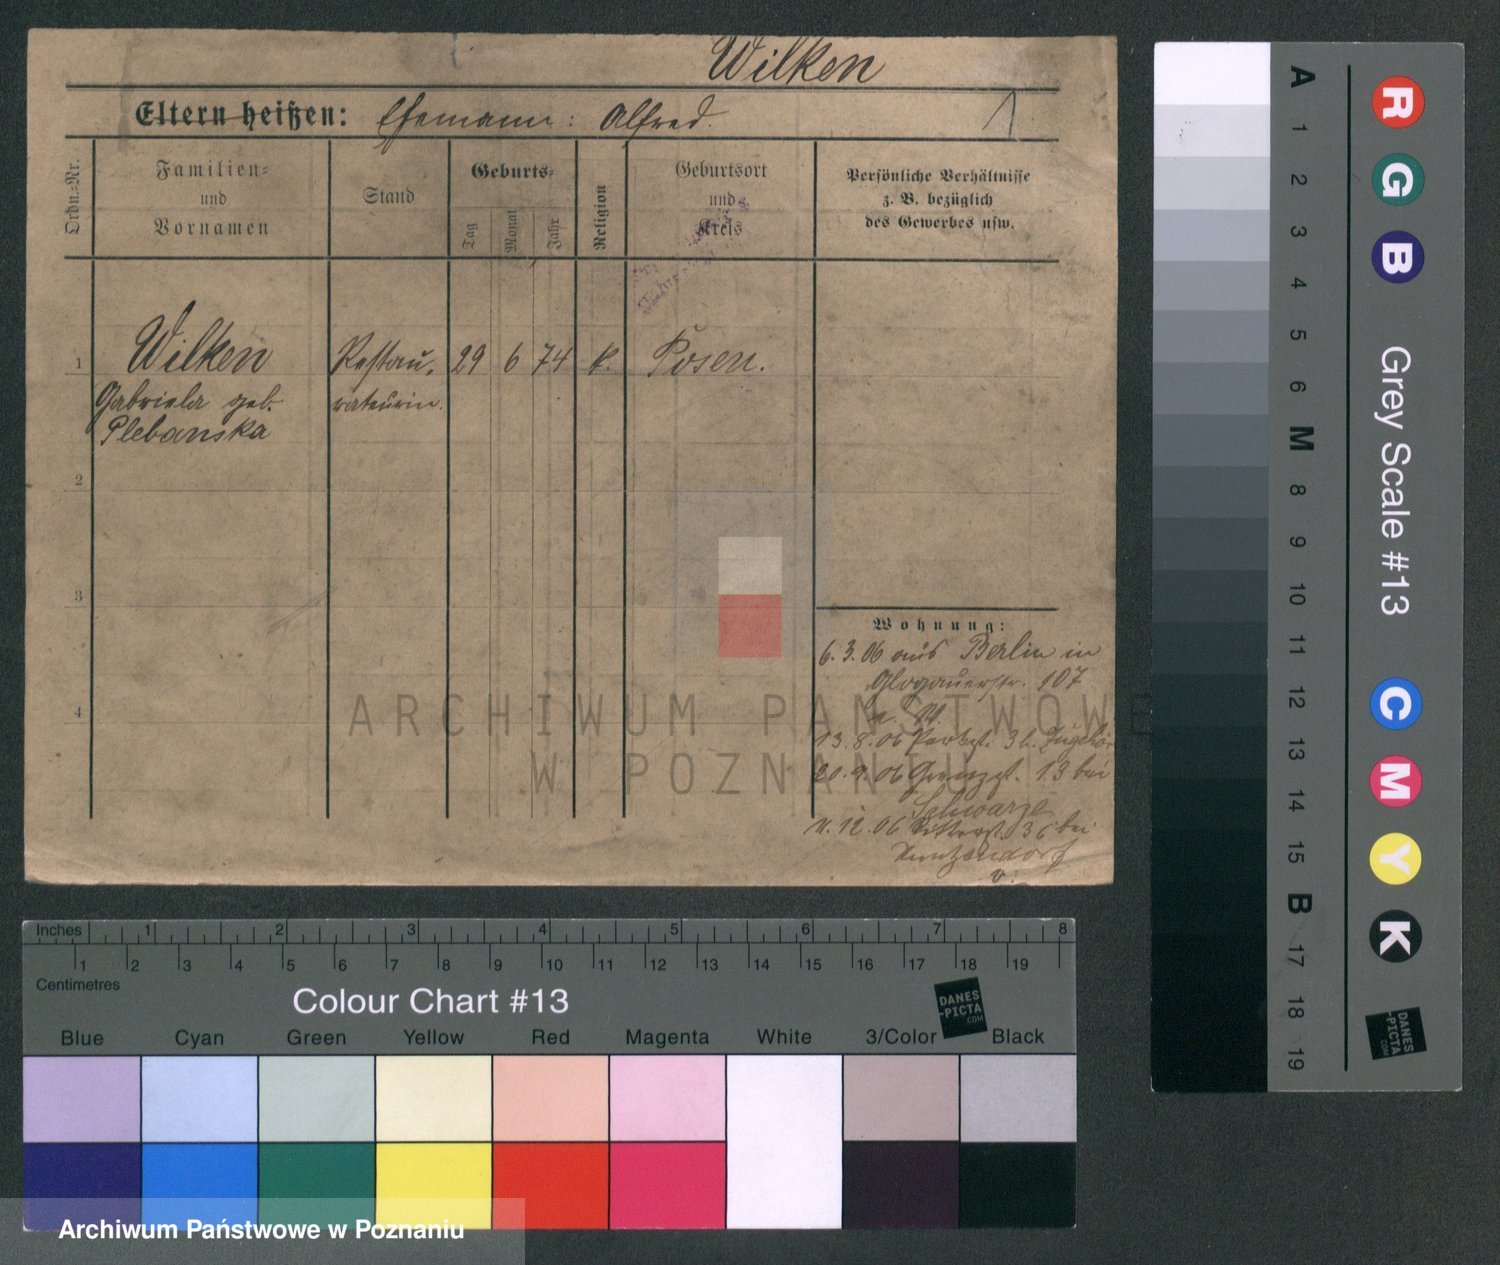 Wilken
Eltern heißen: Ehemann: Alfred.
Ordn.-Nr.
Familien- und Vornamen
Stand
Geburts-
Tag
Monat
Jahr
Religion
Geburtsort und Kreis
Persönliche Verhältnisse
z. B. bezüglich
des Gewerbes usw.
1 Wilken Restau- 29 6 74 k. Posen.
Gabriela geb. rateurin.
Plebanska
2
3
4
Wohnung:
6.3.06 aus Berlin in
Glogauerstr. 107
13.8.06
20.9.06 Grenzst. 13 bei
Schwarze
12.06 Ritterst. 36 bei
Kunzendorf
ARCHIWUM PAŃSTWOWE
W POZNANIU
A 1 2 3 4 5 6 M 8 9 10 11 12 13 14 15 B 17 18 19
R G B
Grey Scale #13
C M Y K
DANES
-PICTA
.COM
Inches 1 2 3 4 5 6 7 8
1 2 3 4 5 6 7 8 9 10 11 12 13 14 15 16 17 18 19
Centimetres
Colour Chart #13
DANES
-PICTA
.COM
Blue Cyan Green Yellow Red Magenta White 3/Color Black
Archiwum Państwowe w Poznaniu